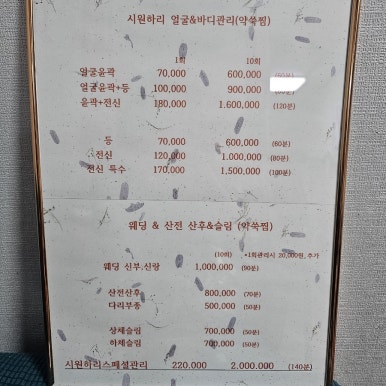 시원하리 얼굴&바디관리(약쑥찜)
1회 10회
얼굴윤곽 70,000 600,000 (60분)
얼굴윤곽+등 100,000 900,000
윤곽+전신 180,000 1,600,000 (120분)
등 70,000 600,000 (60분)
전신 120,000 1,000,000 (80분)
전신 특수 170,000 1,500,000 (100분)
웨딩 & 산전 산후&슬림 (약쑥찜)
(10회) *1회관리시 20,000원, 추가
웨딩 신부,신랑 1,000,000 (90분)
산전산후 800,000 (70분)
다리부종 500,000 (50분)
상체슬림 700,000 (50분)
하체슬림 700,000 (50분)
시원하리스페셜관리 220.000 2.000.000 (140분)